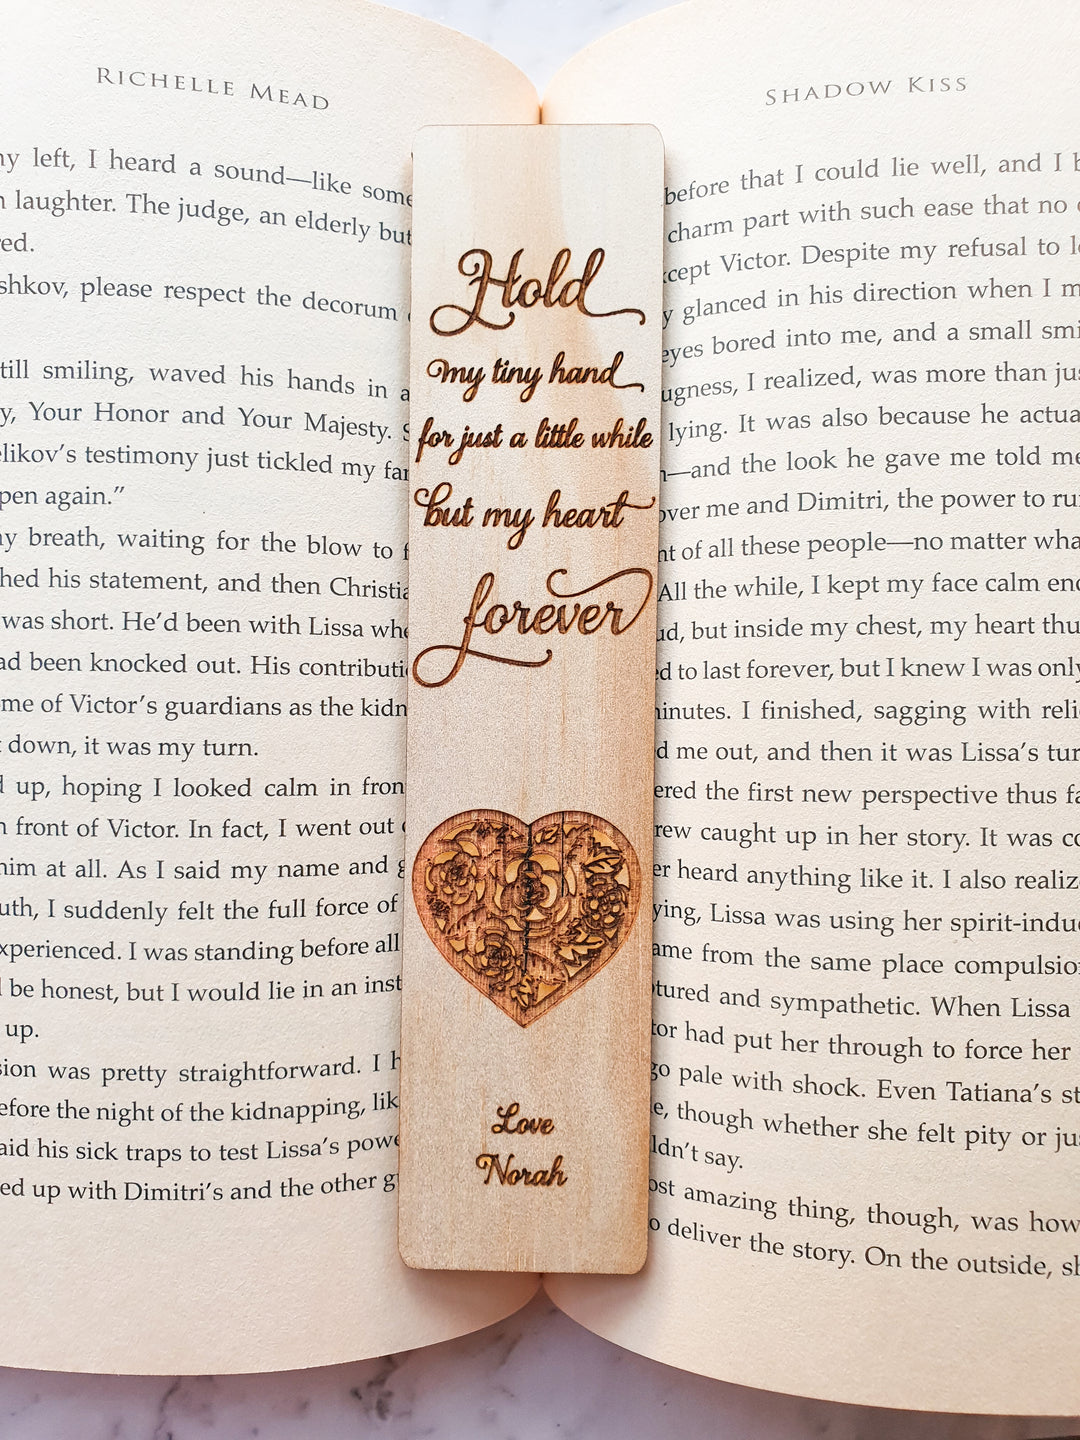 RICHELLE MEAD
my left, I heard a sound—like some
laughter. The judge, an elderly but
red.
shkov, please respect the decorum
still smiling, waved his hands in a
y, Your Honor and Your Majesty. S
elikov's testimony just tickled my fan
pen again."
my breath, waiting for the blow to f
hed his statement, and then Christia
was short. He'd been with Lissa whe
ad been knocked out. His contributi
me of Victor's guardians as the kidn
t down, it was my turn.
d up, hoping I looked calm in fron
n front of Victor. In fact, I went out
him at all. As I said my name and g
uth, I suddenly felt the full force of
xperienced. I was standing before all
be honest, but I would lie in an inst
up.
sion was pretty straightforward. I h
efore the night of the kidnapping, lik
aid his sick traps to test Lissa's powe
ed up with Dimitri's and the other g
Hold
my tiny hand
for just a little while
but my heart
forever
Love
Norah
SHADOW KISS
before that I could lie well, and I b
charm part with such ease that no
xcept Victor. Despite my refusal to l
y glanced in his direction when I m
eyes bored into me, and a small smi
ugness, I realized, was more than jus
lying. It was also because he actua
—and the look he gave me told me
over me and Dimitri, the power to ru
nt of all these people—no matter wha
All the while, I kept my face calm en
ud, but inside my chest, my heart thu
d to last forever, but I knew I was only
minutes. I finished, sagging with reli
d me out, and then it was Lissa's tur
ered the first new perspective thus fa
rew caught up in her story. It was co
er heard anything like it. I also realiz
ying, Lissa was using her spirit-indu
ame from the same place compulsio
ptured and sympathetic. When Lissa
tor had put her through to force her
go pale with shock. Even Tatiana's st
e, though whether she felt pity or ju
ldn't say.
ost amazing thing, though, was how
o deliver the story. On the outside, sh